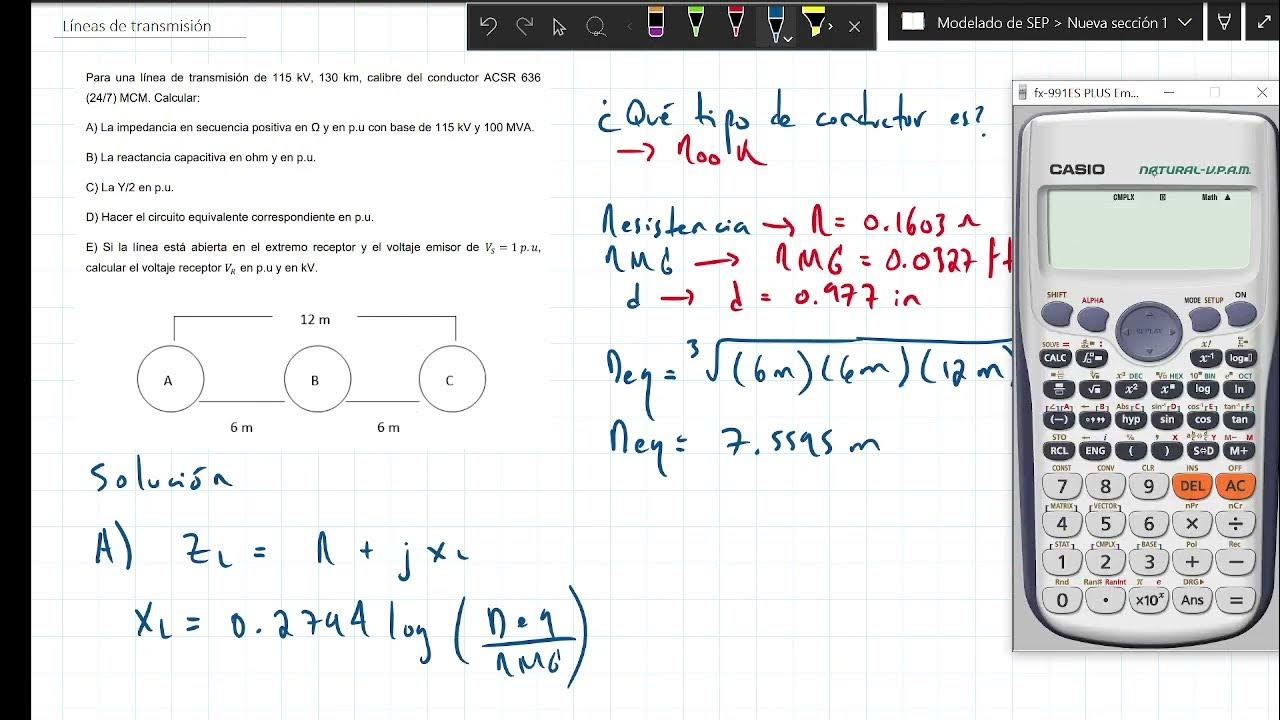 Líneas de transmisión
Modelado de SEP > Nueva sección 1
Para una línea de transmisión de 115 kV, 130 km, calibre del conductor ACSR 636
(24/7) MCM. Calcular:
A) La impedancia en secuencia positiva en Ω y en p.u con base de 115 kV y 100 MVA.
B) La reactancia capacitiva en ohm y en p.u.
C) La Y/2 en p.u.
D) Hacer el circuito equivalente correspondiente en p.u.
E) Si la línea está abierta en el extremo receptor y el voltaje emisor de V_S = 1 p.u,
calcular el voltaje receptor V_R en p.u y en kV.
12 m
A B C
6 m 6 m
Solución
A) Z_L = R + j X_L
X_L = 0.2794 log (Deq / RMG)
¿Qué tipo de conductor es?
→ Rook
Resistencia → R = 0.1603 Ω
RMG → RMG = 0.0327 ft
d → d = 0.977 in
Deq = ³√(6m)(6m)(12m)
Deq = 7.5595 m
fx-991ES PLUS Em...
CASIO NATURAL-V.P.A.M.
CMPLX D Math ▲
SHIFT ALPHA REPLAY MODE SETUP ON
SOLVE = x! 
CALC x⁻¹ log
x³ DEC 10ˣ BIN eˣ OCT
√ x² log ln
Abs sin⁻¹ cos⁻¹ tan⁻¹
(−) hyp sin cos tan
STO M− M
RCL ENG ( ) S⇔D M+
CONST CONV CLR INS OFF
7 8 9 DEL AC
MATRIX VECTOR nPr nCr
4 5 6 × ÷
STAT CMPLX BASE Pol Rec
1 2 3 + −
Rnd Ran# RanInt π e DRG▸
0 . ×10ˣ Ans =